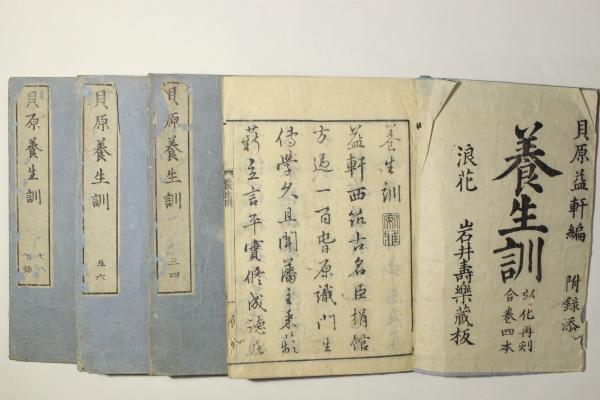 貝原益軒編 附録添
養生訓
弘化再刻
合巻四本
浪花 岩井壽樂藏板
養生訓
益軒西筑古名臣捐館
方過一百嘗原識門生
傳學久且聞藩主乗
立言平實修成德
貝原養生訓
三四
貝原養生訓
五六
貝原養生訓
七八
附録